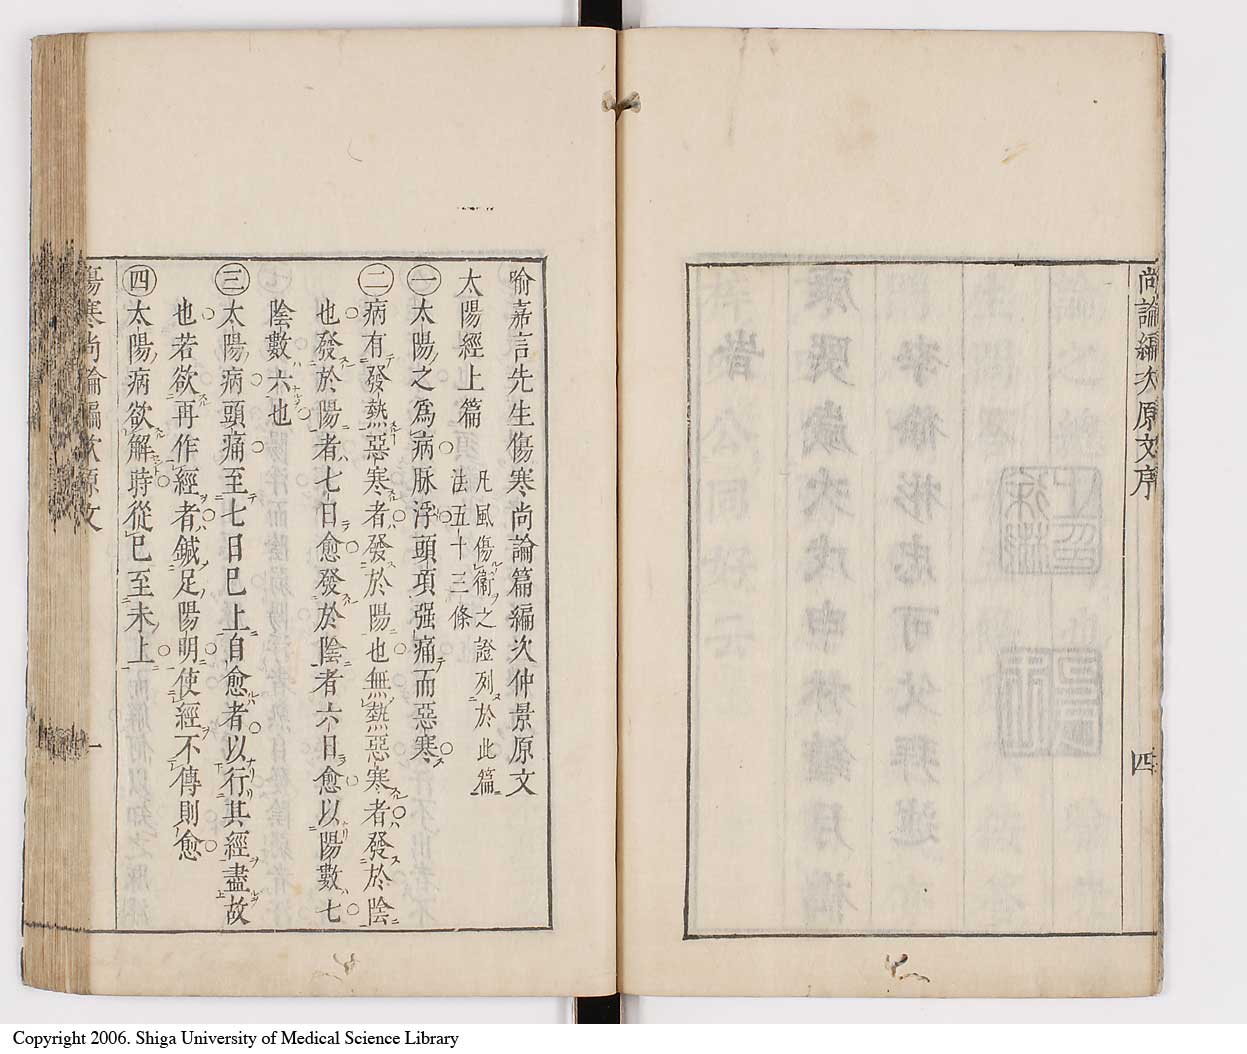 尚論編次原文序
四
喻嘉言先生傷寒尚論篇編次仲景原文
太陽經上篇
凡風傷衞之證列於此篇
法五十三條
㊀太陽之爲病脉浮頭項强痛而惡寒
㊁病有發熱惡寒者發於陽也無熱惡寒者發於陰
也發於陽者七日愈發於陰者六日愈以陽數七
陰數六也
㊂太陽病頭痛至七日已上自愈者以行其經盡故
也若欲再作經者鍼足陽明使經不傳則愈
㊃太陽病欲解時從巳至未上
傷寒尚論編次原文
一
Copyright 2006. Shiga University of Medical Science Library